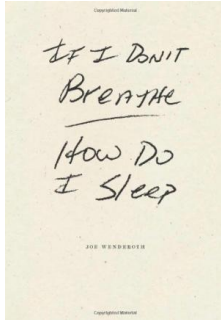 Copyrighted Material
IF I DON'T
BREATHE
HOW DO
I SLEEP
JOE WENDEROTH
Copyrighted Material